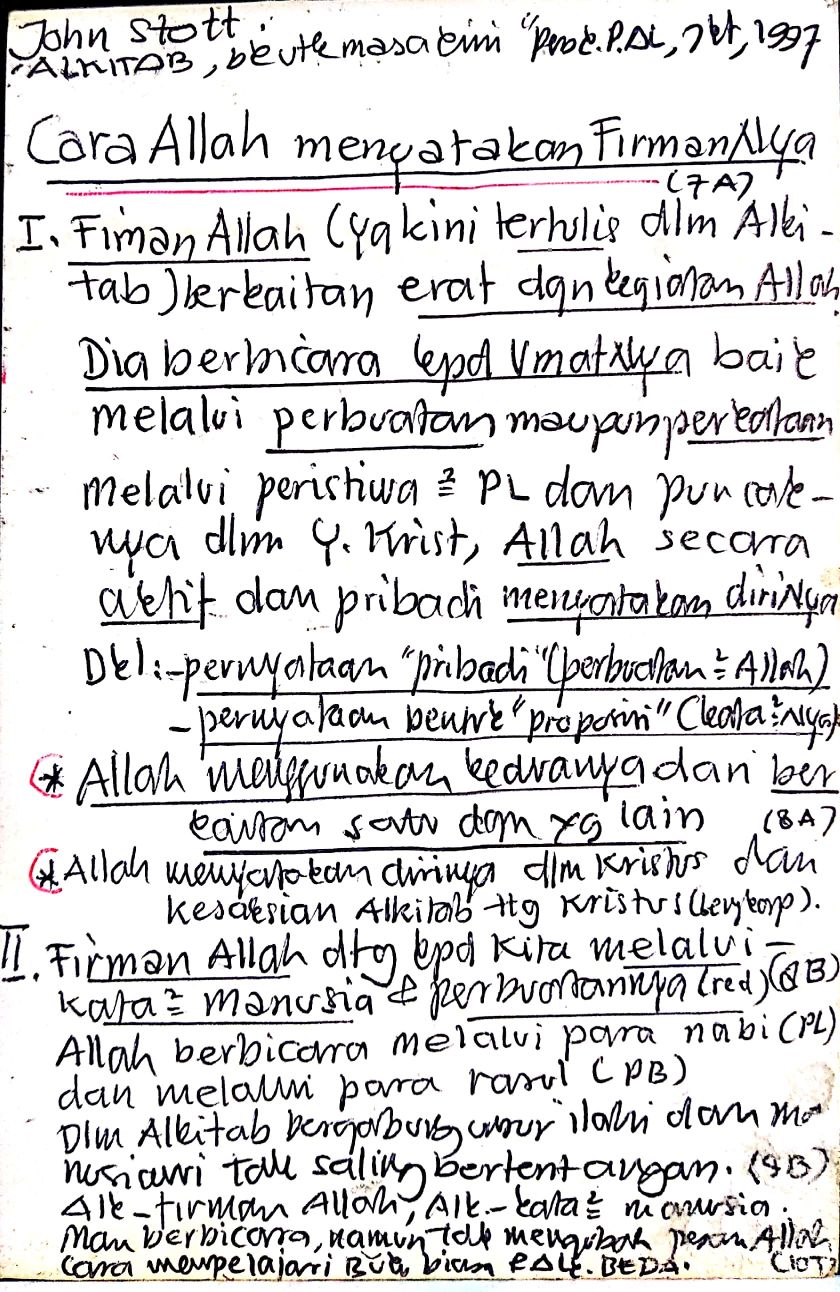 John Stott.
ALKITAB, masa kini "
Cara Allah menyatakan FirmanNya
(7A)
I. Fiman Allah (yg kini tertulis dlm Alki-
tab) berkaitan erat dgn kegiatan Allah
Dia berbicara kpd UmatNya baik
melalui perbuatan maupun perkataan
Melalui peristiwa² PL dan puncak-
nya dlm Y. Krist, Allah secara
aktif dan pribadi menyatakan diriNya
Dkl: -pernyataan "pribadi" (perbuatan² Allah)
- pernyataan bentuk "proposisi" (kata²Nya)
* Allah menggunakan keduanya dan ber
kaitan satu dgn yg lain (8A)
* Allah menyatakan dirinya dlm Kristus dan
Kesaksian Alkitab ttg Kristus
II. Firman Allah dtg kpd kita melalui -
kata² manusia & perbuatannya (red) (8B)
Allah berbicara melalui para nabi (PL)
dan melalui para rasul (PB)
Dlm Alkitab bergabung unsur ilahi dan ma
nusiawi tak saling bertentangan. (9B)
Alk-firman Allah, Alk-kata² manusia.
Man berbicara, namun tdk mengubah pesan Allah
cara mempelajari Buku biasa & Alk. BEDA.